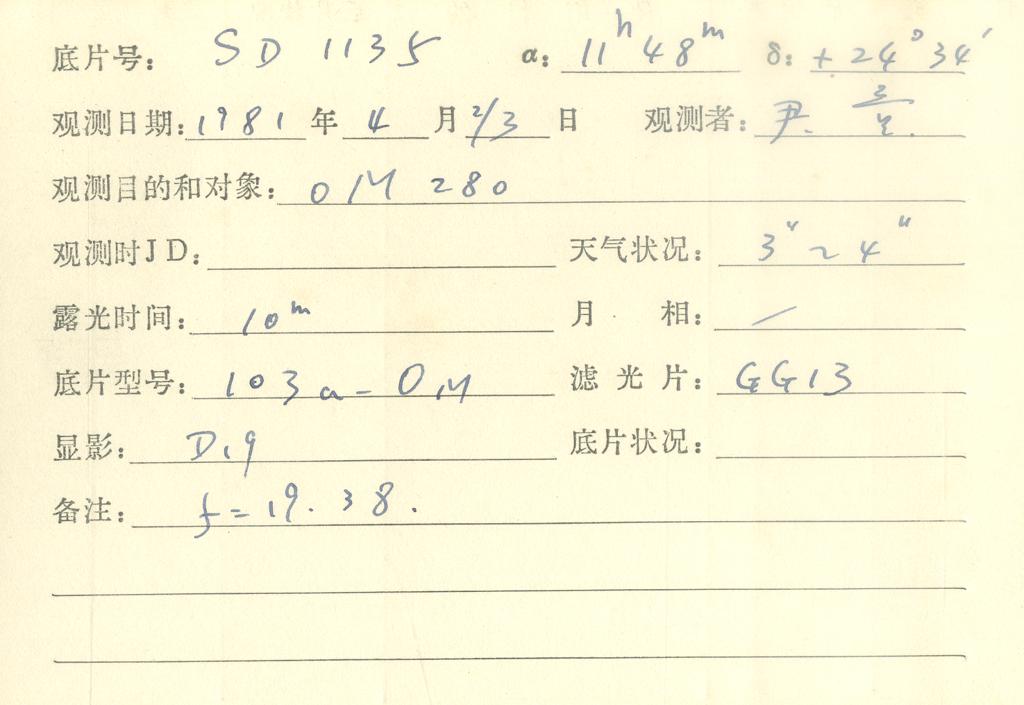 底片号: SD 1135 α: 11ʰ 48ᵐ δ: +24° 34′
观测日期: 1981 年 4 月 2/3 日 观测者: 尹.
观测目的和对象: OM 280
观测时JD: 天气状况: 3″~4″
露光时间: 10ᵐ 月 相: /
底片型号: 103a-O 滤光片: GG13
显影: D19 底片状况:
备注: f=19.38.